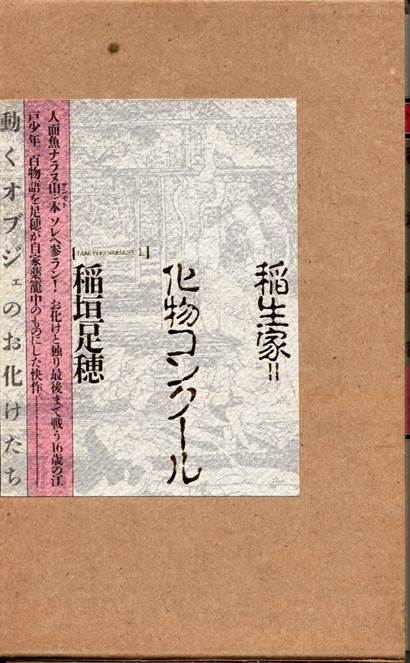 稲生家=
化物コンクール
稲垣足穂
人面魚ナラヌ山ン本 ソレヘ参ラン! お化けと独り最後まで戦う16歳の江
戸少年。百物語を足穂が自家薬籠中のものにした快作。
動くオブジェのお化けたち